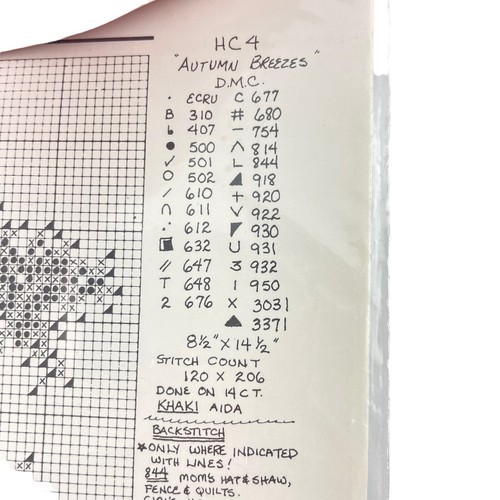 HC4
"AUTUMN BREEZES"
D.M.C.
· ECRU C 677
B 310 # 680
b 407 – 754
● 500 ∧ 814
✓ 501 L 844
O 502 ◢ 918
/ 610 + 920
∩ 611 V 922
∴ 612 ◤ 930
632 U 931
// 647 3 932
T 648 I 950
2 676 X 3031
▲ 3371
8½" X 14½"
STITCH COUNT
120 X 206
DONE ON 14 CT.
KHAKI AIDA
BACKSTITCH
*ONLY WHERE INDICATED
WITH LINES!
844 MOMS HAT & SHAW,
FENCE & QUILTS.